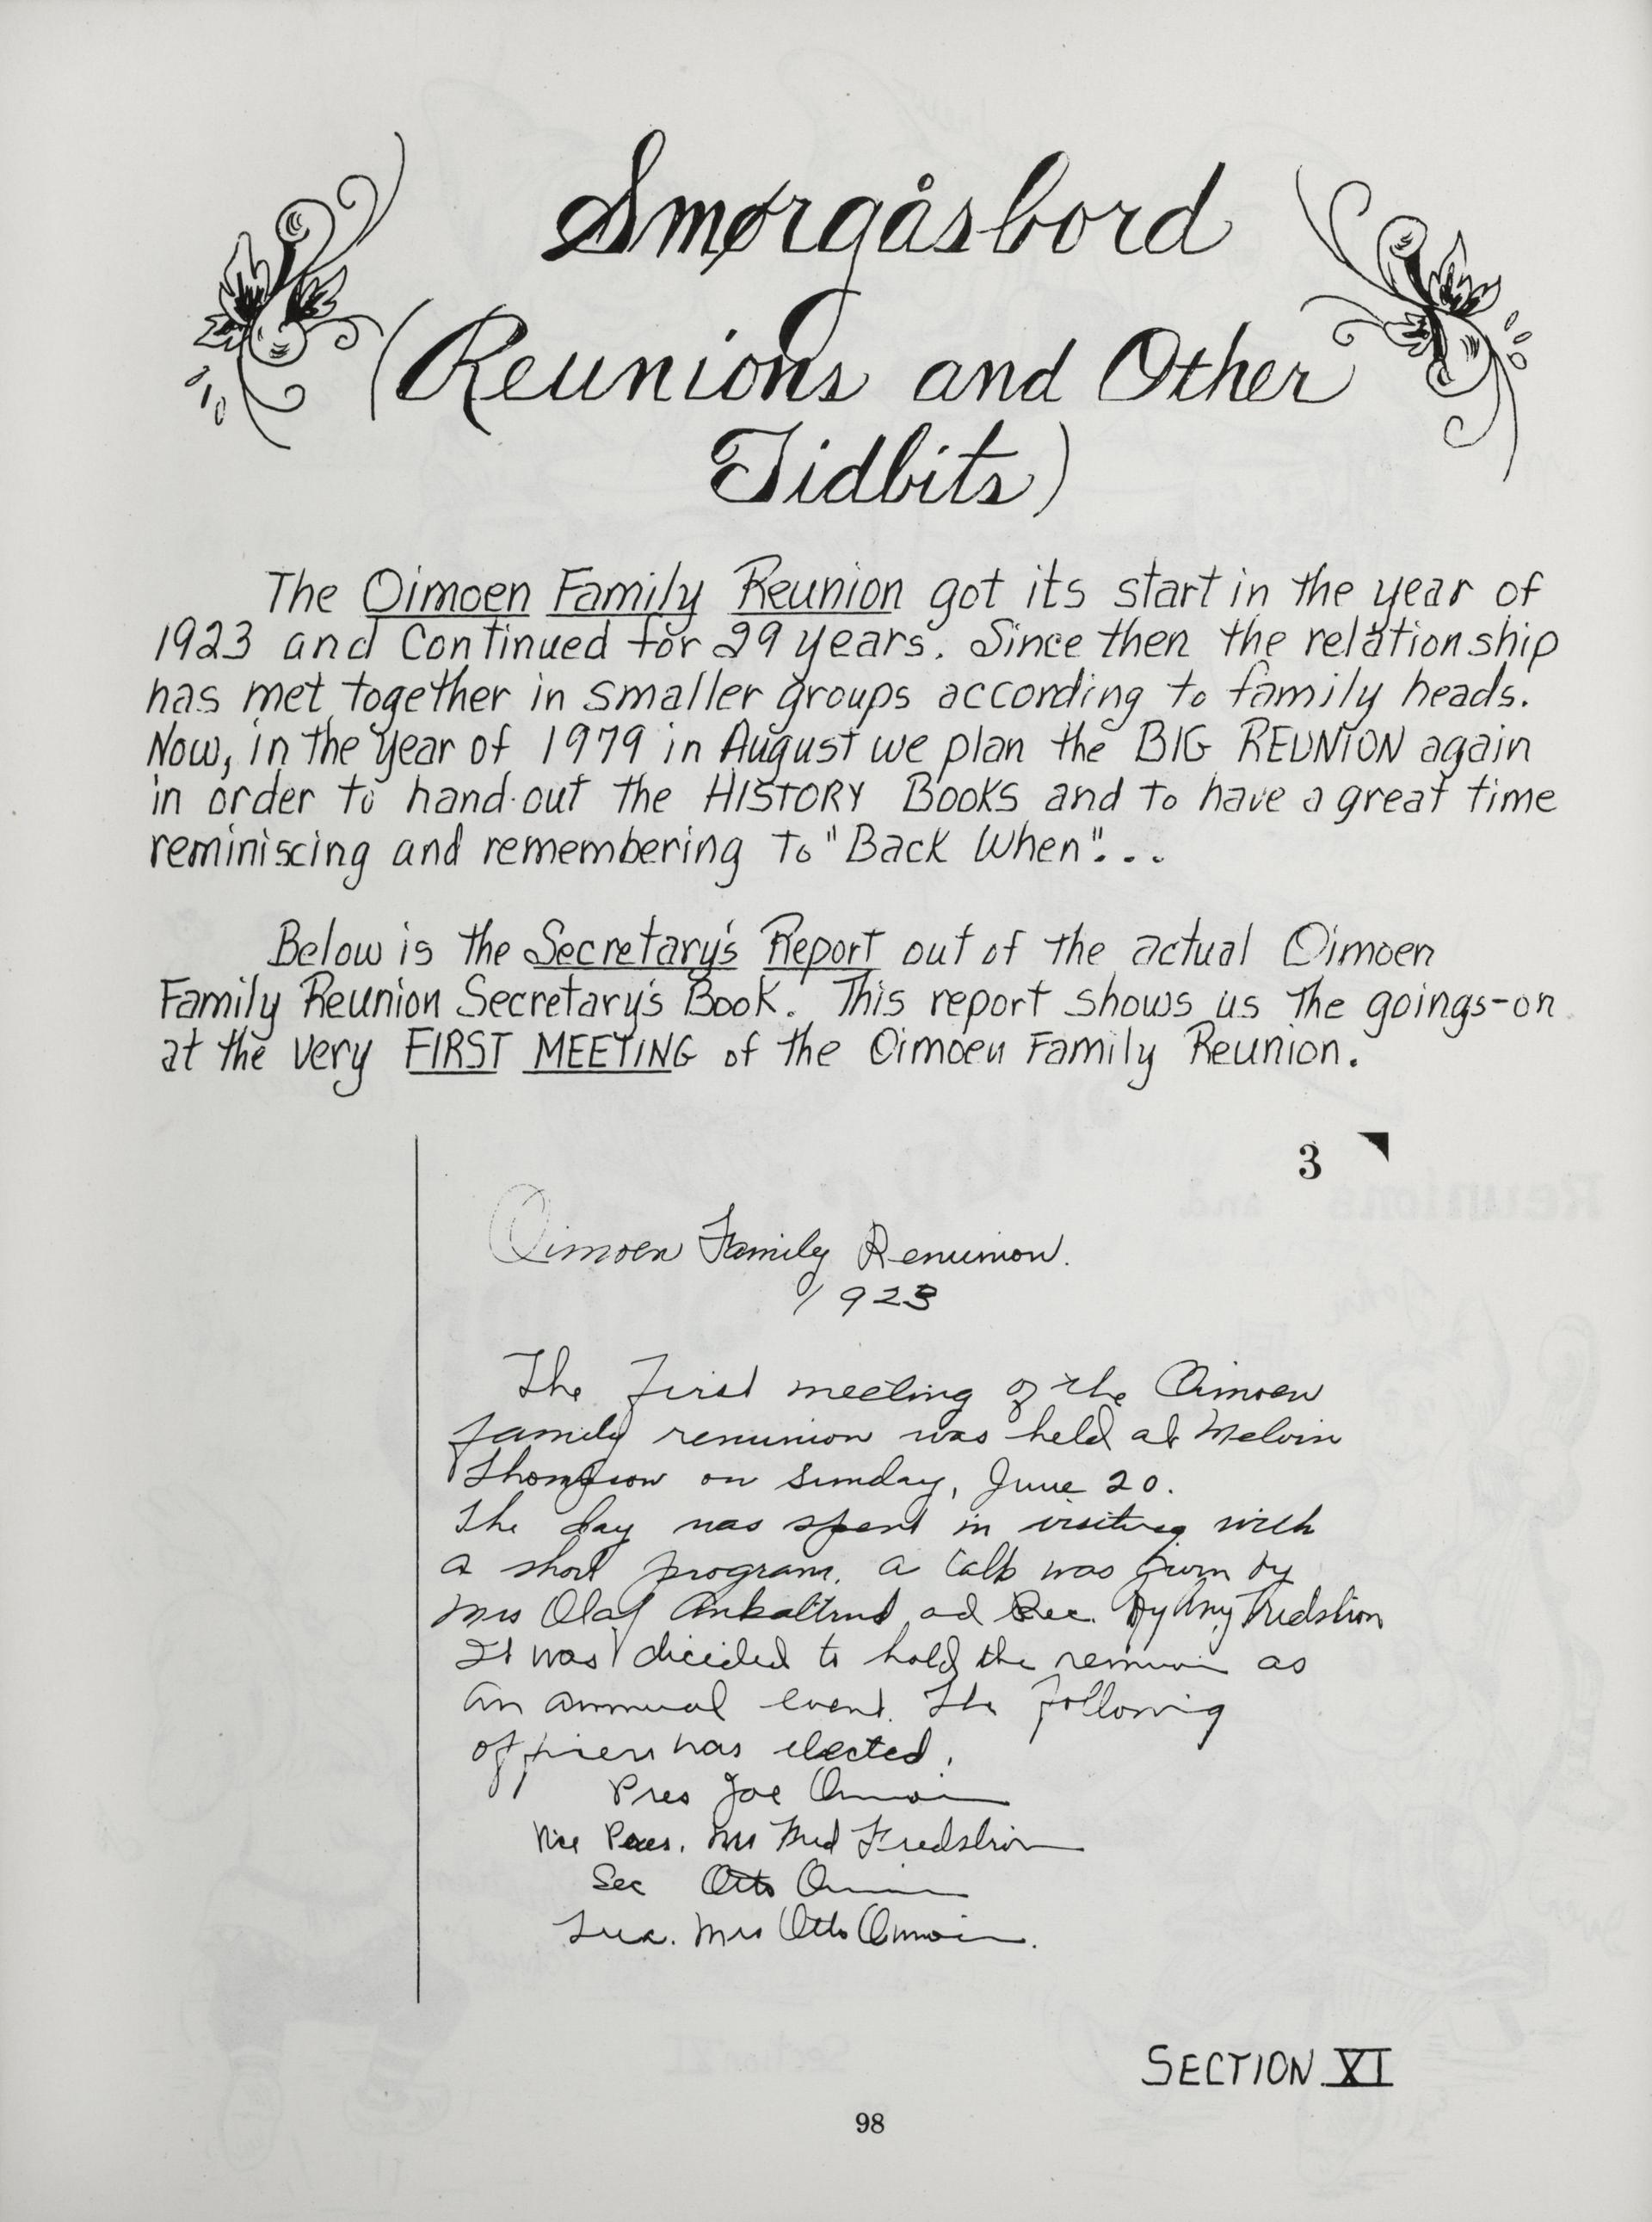 Smørgåsbord
(Reunions and Other
Tidbits)
The Oimoen Family Reunion got its start in the year of
1923 and continued for 29 years. Since then the relationship
has met together in smaller groups according to family heads.
Now, in the year of 1979 in August we plan the BIG REUNION again
in order to hand-out the HISTORY BOOKS and to have a great time
reminiscing and remembering to "Back When"...
Below is the Secretary's Report out of the actual Oimoen
Family Reunion Secretary's Book. This report shows us the goings-on
at the very FIRST MEETING of the Oimoen Family Reunion.
3
Oimoen Family Renunion.
1923
The first meeting of the Oimoen
family renunion was held at Melvin
Thompson on Sunday, June 20.
The day was spent in visiting with
a short program. a talk was given by
Mrs Olaf ad Rec. by
It was decided to hold the as
an annual event. The following
officers was elected.
Pres Joe Oimoen
Vice Pres. Mrs Fredstrom
Sec Otto Oimoen
Mrs Otto Oimoen.
SECTION XI
98